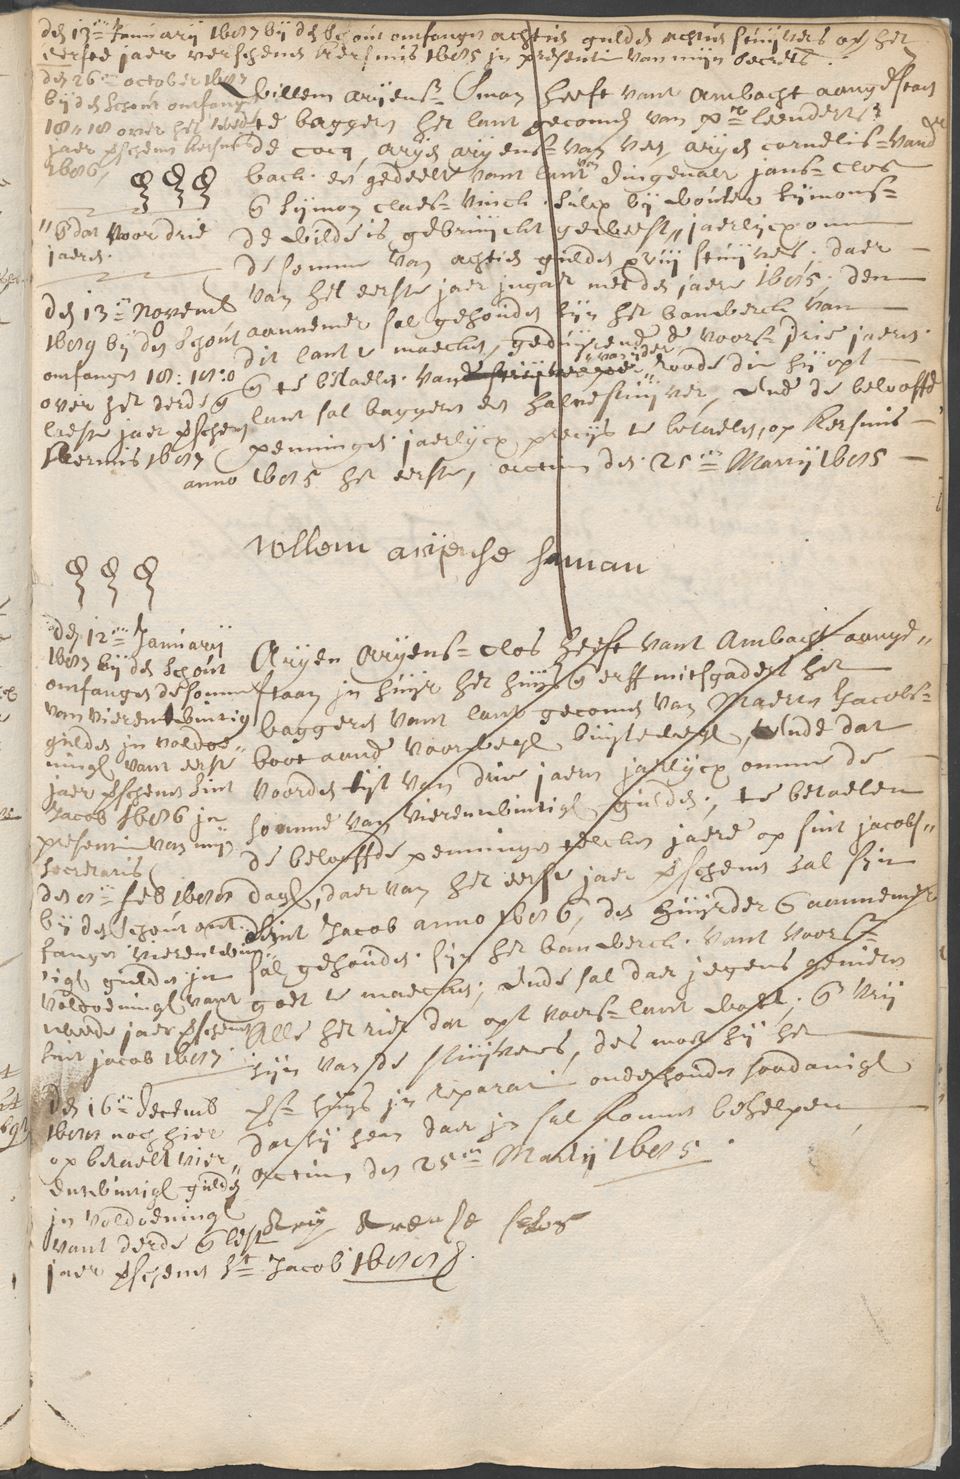 den 13en Januarij 1687 bij den Schout omfangen achtien gulden achtien stuijvers op het
eerste jaer verschenen kersmis 1685 in presentie van mijn Secrets
den 26en october 1687
bij den Schout omfangen
18:18 over het twede
jaer verschenen kersmis
1686
"Is dat voor drie
jaeren.
den 13en Novemb
1689 bij den Schout
omfangen 18:18:0
over het derde en
laeste jaer verschenen
kersmis 1687
Willem arijens Sman heeft vant Ambacht aangestaen
te baggeren het lant gecomen van pr leenderts
de cocq, arijen arijens van nes, arijen cornelis vander
bach. en gedeelte vant lant van dingenaer jans clos
en sijmon claes vinck. sulcx bij wouter sijmons
de wilde is gebruijckt geweest, jaerlijcx omme
de somme van achtien gulden stuijvers, daer
van het eerste jaer ingaet met den jaere 1685, den
aannemer sal gehouden sijn het banwerck van
dit lant te maecken, geduijrende de voors drie jaeren
en te betaelen van ijder roode die hij opt
lant sal baggeren een halve stuijver, Ende de beloofde
penningen jaerlijcx precijs te betaelen, op kersmis
anno 1685 het eerste, actum den 25en Martij 1685
wllem arijense sman
den 12en Januarij
1687 bij den Schout
omfangen de somme
van vierentwintig
gulden in voldoe"
ningh vant eerste
jaer verschenen Sint
Jacob 1686 in
presentie van mijn
Secretaris
den 8en feb 1688
bij den Schout ont
fangen vierentwin
tigh gulden in
voldoeningh vant
tweede jaer verschenen
sint jacob 1687.
den 16en decemb
1688 noch hier
op betaelt vier"
entwintigh gulden
in voldoeningh
vant derde en leste
jaer verschenen St Jacob 1688.
Arijen Arijens Clos heeft vant Ambacht aange"
staen in huijr het huijs en erff mitsgaders het
baggeren vant lant gecomen van Maerten Jacobs
boot aande voorwegh buijtewegh, Ende dat
voorden tijt van drie jaeren jaerlijcx omme de
somme van vierentwintigh gulden, te betaelen
de beloofde penningen telcken jaere op sint jacobs"
dagh, daer van het eerste jaer verschenen sal sijn
Sint Jacob anno 1686, den huijrder en aannemer
sal gehouden sijn het banwerck vant voors
goet te maecken, Ende sal daer jegens genieten
alle het riet dat opt voors lant wast, en vrij
sijn van de stuijvers, des moet hij het
vs huijs in reparatie onderhouden soodanigh
dat hij hem daer in sal konnen behelpen
actum den 25en Martij 1685.
Arij Areense Clos